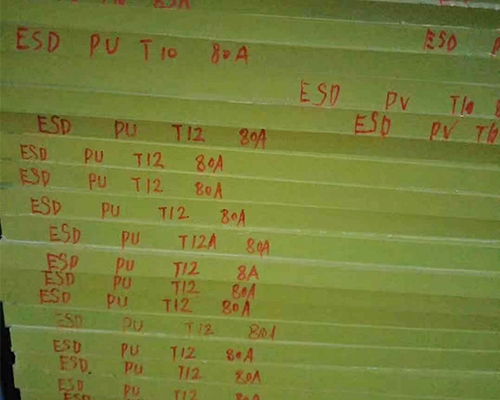 T10 80A
ESD PU T10 80A
ESD
ESD PU T10
ESD PU T10
ESD PU T12 80A
ESD PU T12 80A
ESD PU T12 80A
ESD PU T12 80A
ESD PU T12A 80A
ESD PU T12 8A
ESD PU T12 80A
ESD PU T12 80A
ESD PU T12 80A
ESD PU T12 80A
ESD PU T12 80A
ESD PU T12 80A
ESD PU T12 80A